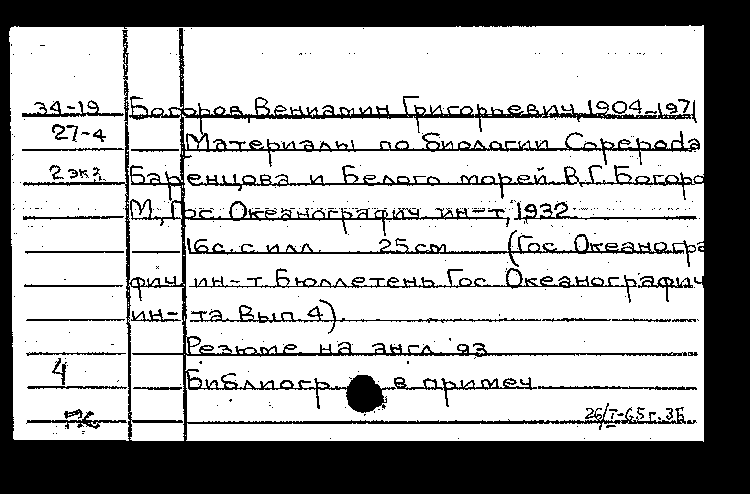 34-19 Богоров, Вениамин Григорьевич, 1904-1971
27-4 Материалы по биологии Copepoda
2 экз Баренцова и Белого морей. В.Г. Богоро
М., Гос. Океанографич. ин-т, 1932.
16с. с илл. 25см (Гос. Океаногра
фич. ин-т. Бюллетень Гос. Океанографич
ин-та. Вып. 4).
Резюме на англ. яз
4 Библиогр. в примеч.
26/I-65г. ЗБ